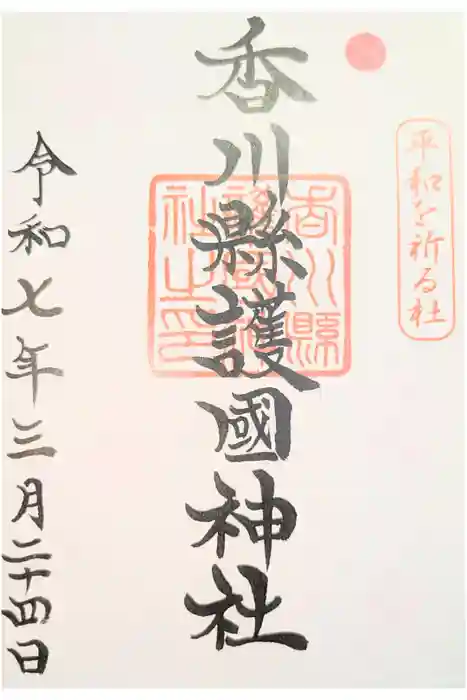 平和を祈る社
香川縣護國神社
香川縣護國神社之印
令和七年三月二十四日